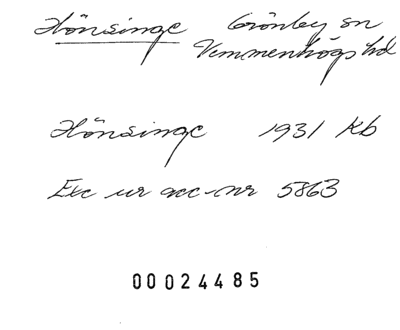 Hönsinge Grönby sn
Vemmenhögs hd
Hönsinge 1931 Kb
Exc ur acc-nr 5863
00024485